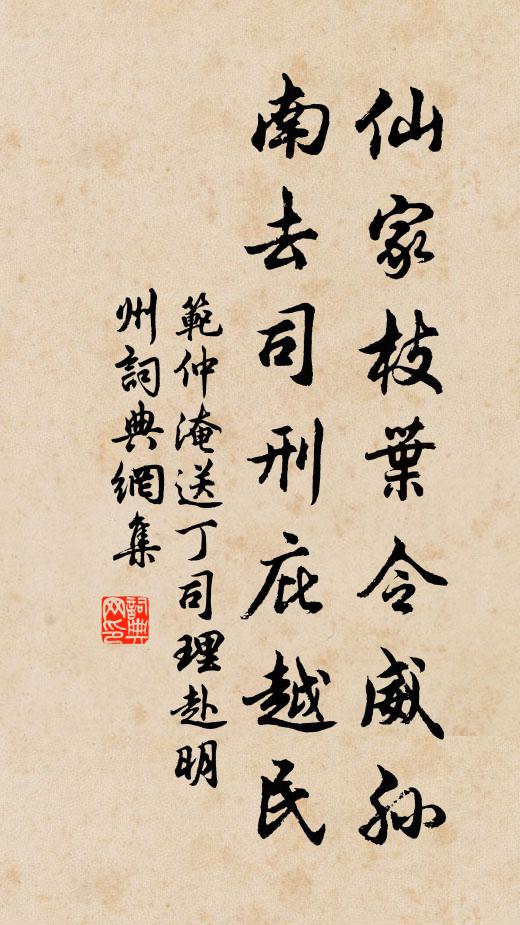 仙家枝葉令威孫
南去司刑庇越民
範仲淹送丁司理赴明
州詞典網集
詞典网印